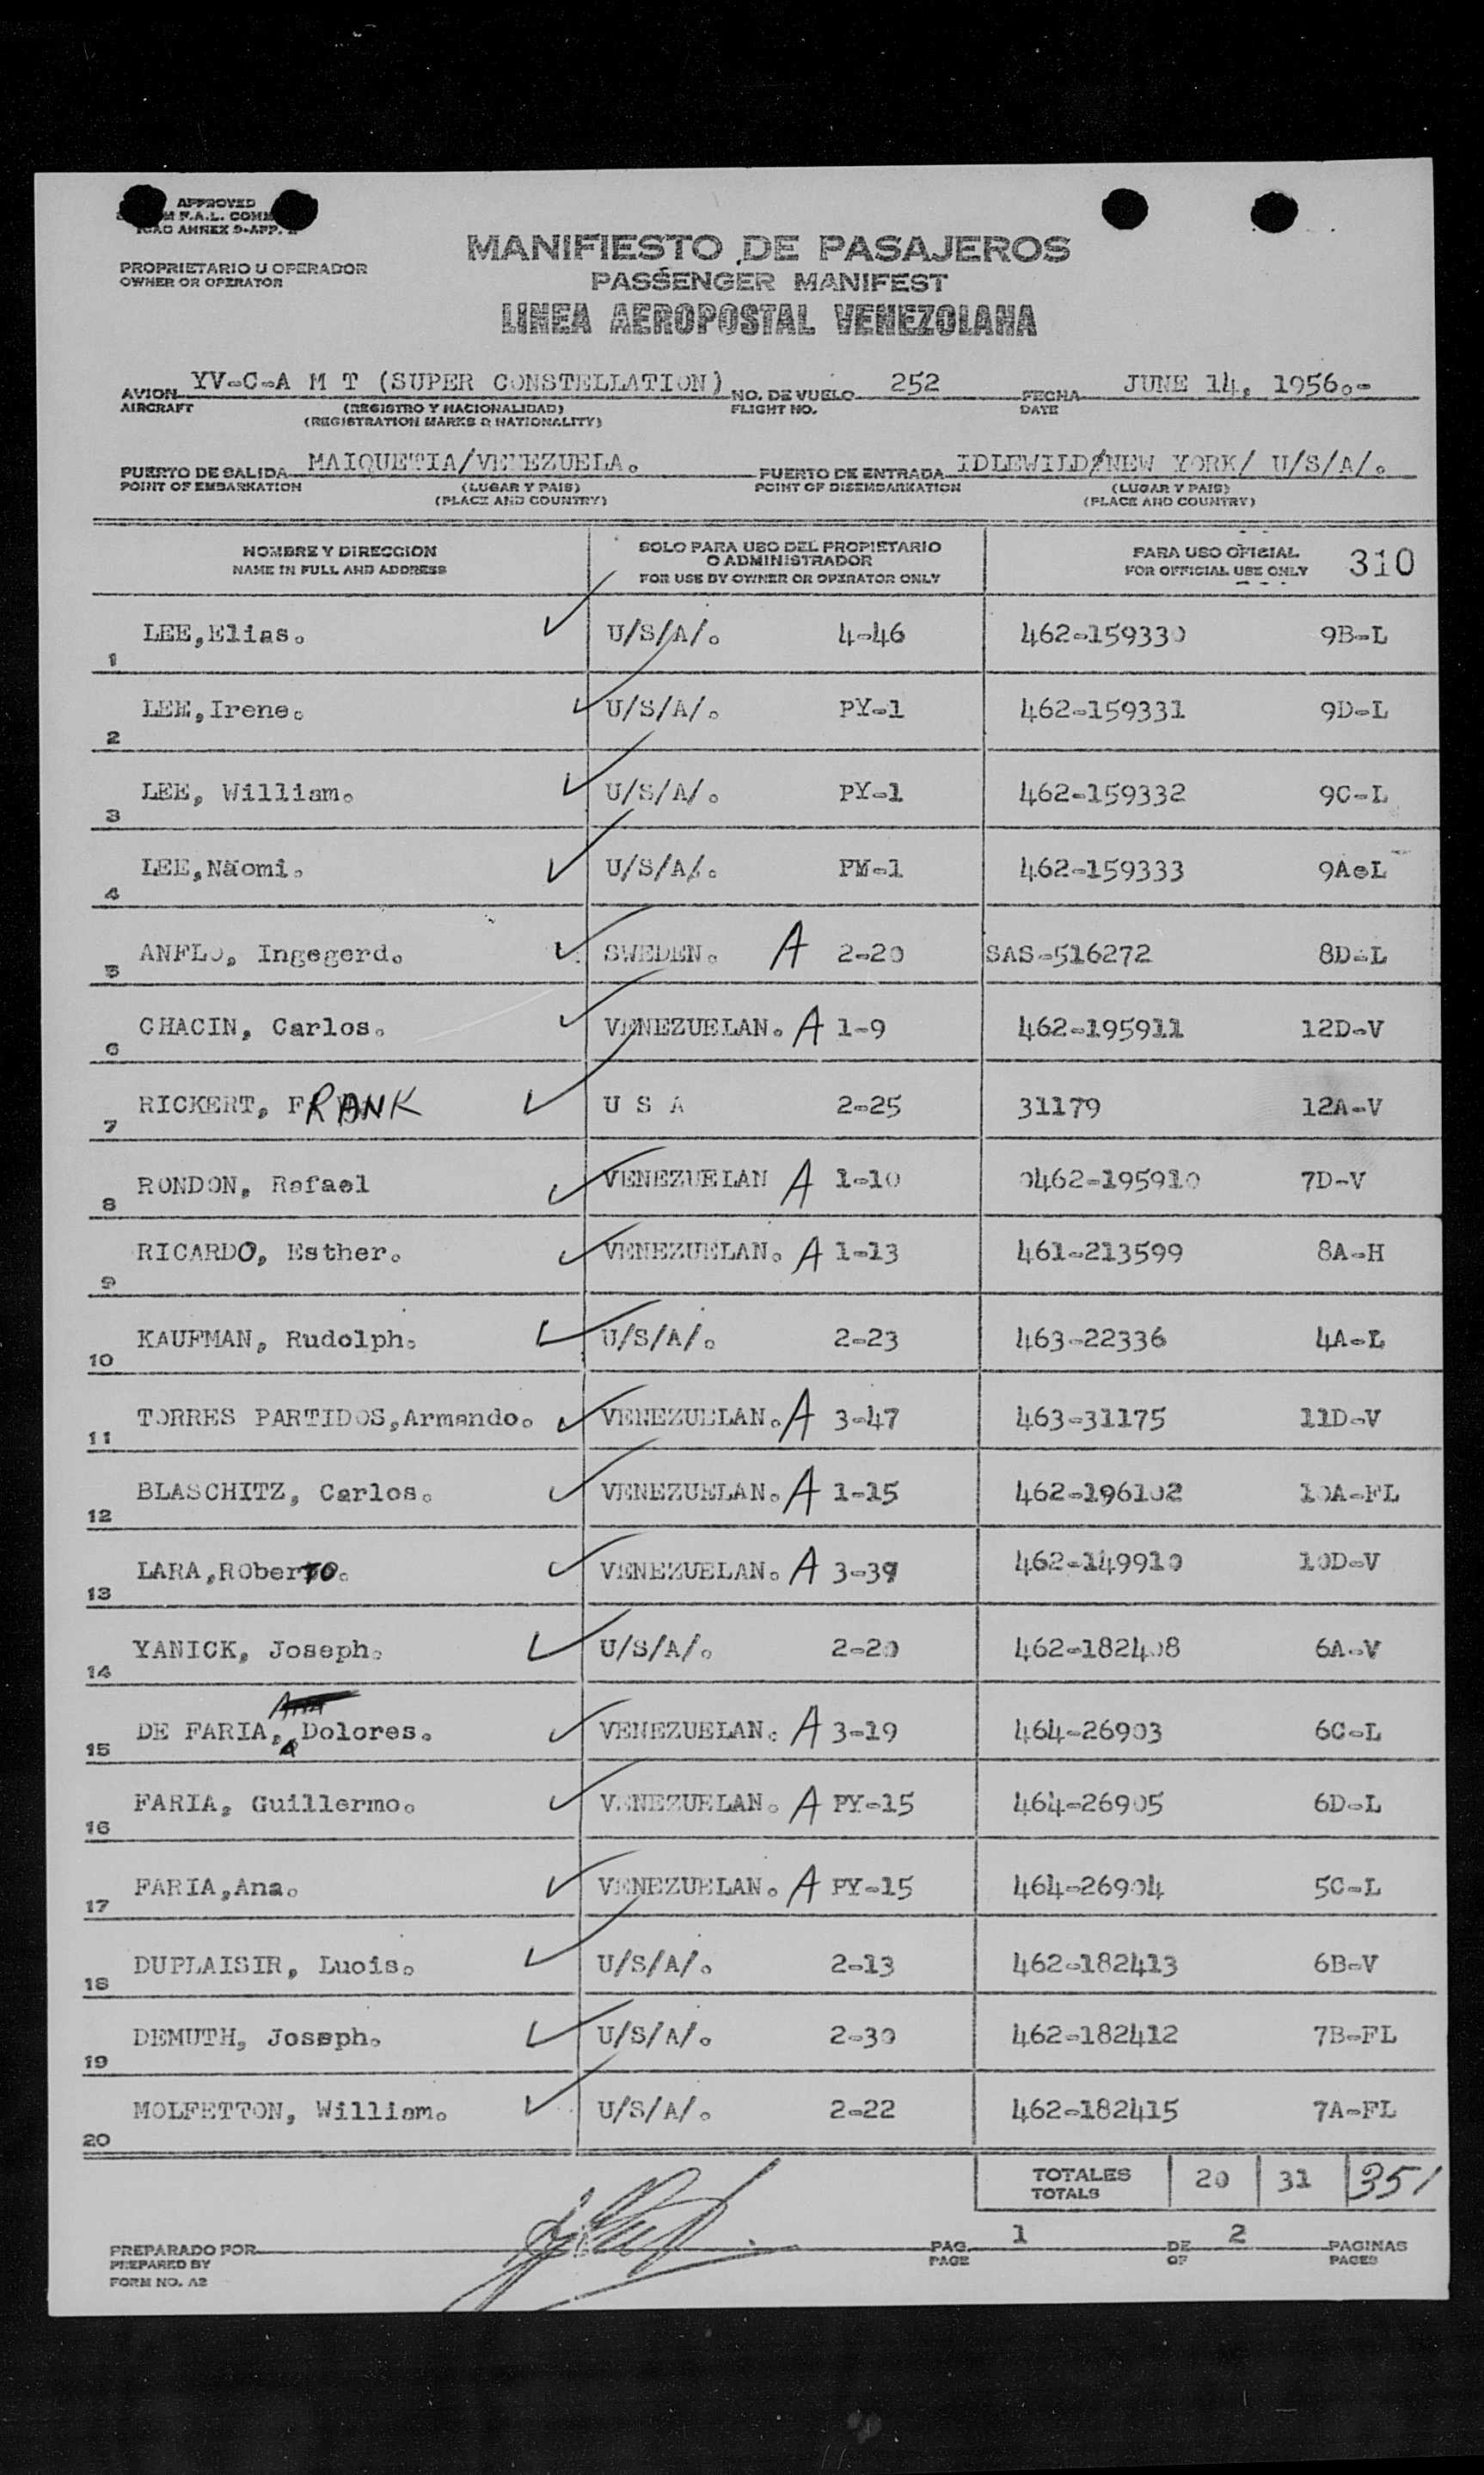 APPROVED
F.A.L. COMM
ICAO ANNEX 9-APP.
PROPRIETARIO U OPERADOR
OWNER OR OPERATOR
MANIFIESTO DE PASAJEROS
PASSENGER MANIFEST
LINEA AEROPOSTAL VENEZOLANA
AVION YV-C-A M T (SUPER CONSTELLATION) NO. DE VUELO 252 FECHA JUNE 14, 1956.-
AIRCRAFT (REGISTRO Y NACIONALIDAD) FLIGHT NO. DATE
(REGISTRATION MARKS & NATIONALITY)
PUERTO DE SALIDA MAIQUETIA/VENEZUELA. PUERTO DE ENTRADA IDLEWILD/NEW YORK/ U/S/A/.
POINT OF EMBARKATION (LUGAR Y PAIS) POINT OF DISEMBARKATION (LUGAR Y PAIS)
(PLACE AND COUNTRY) (PLACE AND COUNTRY)
NOMBRE Y DIRECCION SOLO PARA USO DEL PROPIETARIO O ADMINISTRADOR PARA USO OFICIAL 310
NAME IN FULL AND ADDRESS FOR USE BY OWNER OR OPERATOR ONLY FOR OFFICIAL USE ONLY
1 LEE,Elias. U/S/A/. 4-46 462-159330 9B-L
2 LEE,Irene. U/S/A/. PY-1 462-159331 9D-L
3 LEE, William. U/S/A/. PY-1 462-159332 9C-L
4 LEE,Naomi. U/S/A/. PM-1 462-159333 9A-L
5 ANFLO, Ingegerd. SWEDEN. A 2-20 SAS-516272 8D-L
6 CHACIN, Carlos. VENEZUELAN. A 1-9 462-195911 12D-V
7 RICKERT, FRANK U S A 2-25 31179 12A-V
8 RONDON, Rafael VENEZUELAN A 1-10 0462-195910 7D-V
9 RICARDO, Esther. VENEZUELAN. A 1-13 461-213599 8A-H
10 KAUFMAN, Rudolph. U/S/A/. 2-23 463-22336 4A-L
11 TORRES PARTIDOS,Armando. VENEZUELAN. A 3-47 463-31175 11D-V
12 BLASCHITZ, Carlos. VENEZUELAN. A 1-15 462-196102 10A-FL
13 LARA,ROberTO. VENEZUELAN. A 3-39 462-149910 10D-V
14 YANICK, Joseph. U/S/A/. 2-20 462-182408 6A-V
15 DE FARIA, Dolores. VENEZUELAN. A 3-19 464-26903 6C-L
16 FARIA, Guillermo. VENEZUELAN. A PY-15 464-26905 6D-L
17 FARIA,Ana. VENEZUELAN. A PY-15 464-26904 5C-L
18 DUPLAISIR, Luois. U/S/A/. 2-13 462-182413 6B-V
19 DEMUTH, Joseph. U/S/A/. 2-30 462-182412 7B-FL
20 MOLFETTON, William. U/S/A/. 2-22 462-182415 7A-FL
TOTALES 20 31 351
TOTALS
PREPARADO POR PAG. 1 DE 2 PAGINAS
PREPARED BY PAGE OF PAGES
FORM NO. A2